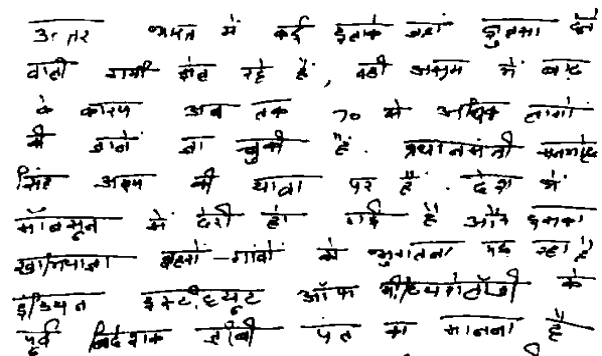 उत्तर भारत में कई इलाके जहां झुलसा देने
वाली गर्मी झेल रहे हैं, वहीं असम में बाढ़
के कारण अब तक 70 से अधिक लोगों
की जानें जा चुकी हैं. प्रधानमंत्री मनमोहन
सिंह असम की यात्रा पर हैं. देश में
मॉनसून में देरी हो गई है और इसका
खामियाजा शहरों-गांवों को भुगतना पड़ रहा है
इंडियन इंस्टीट्यूट ऑफ मीटियरोलॉजी के
पूर्व निदेशक जीबी पंत का मानना है